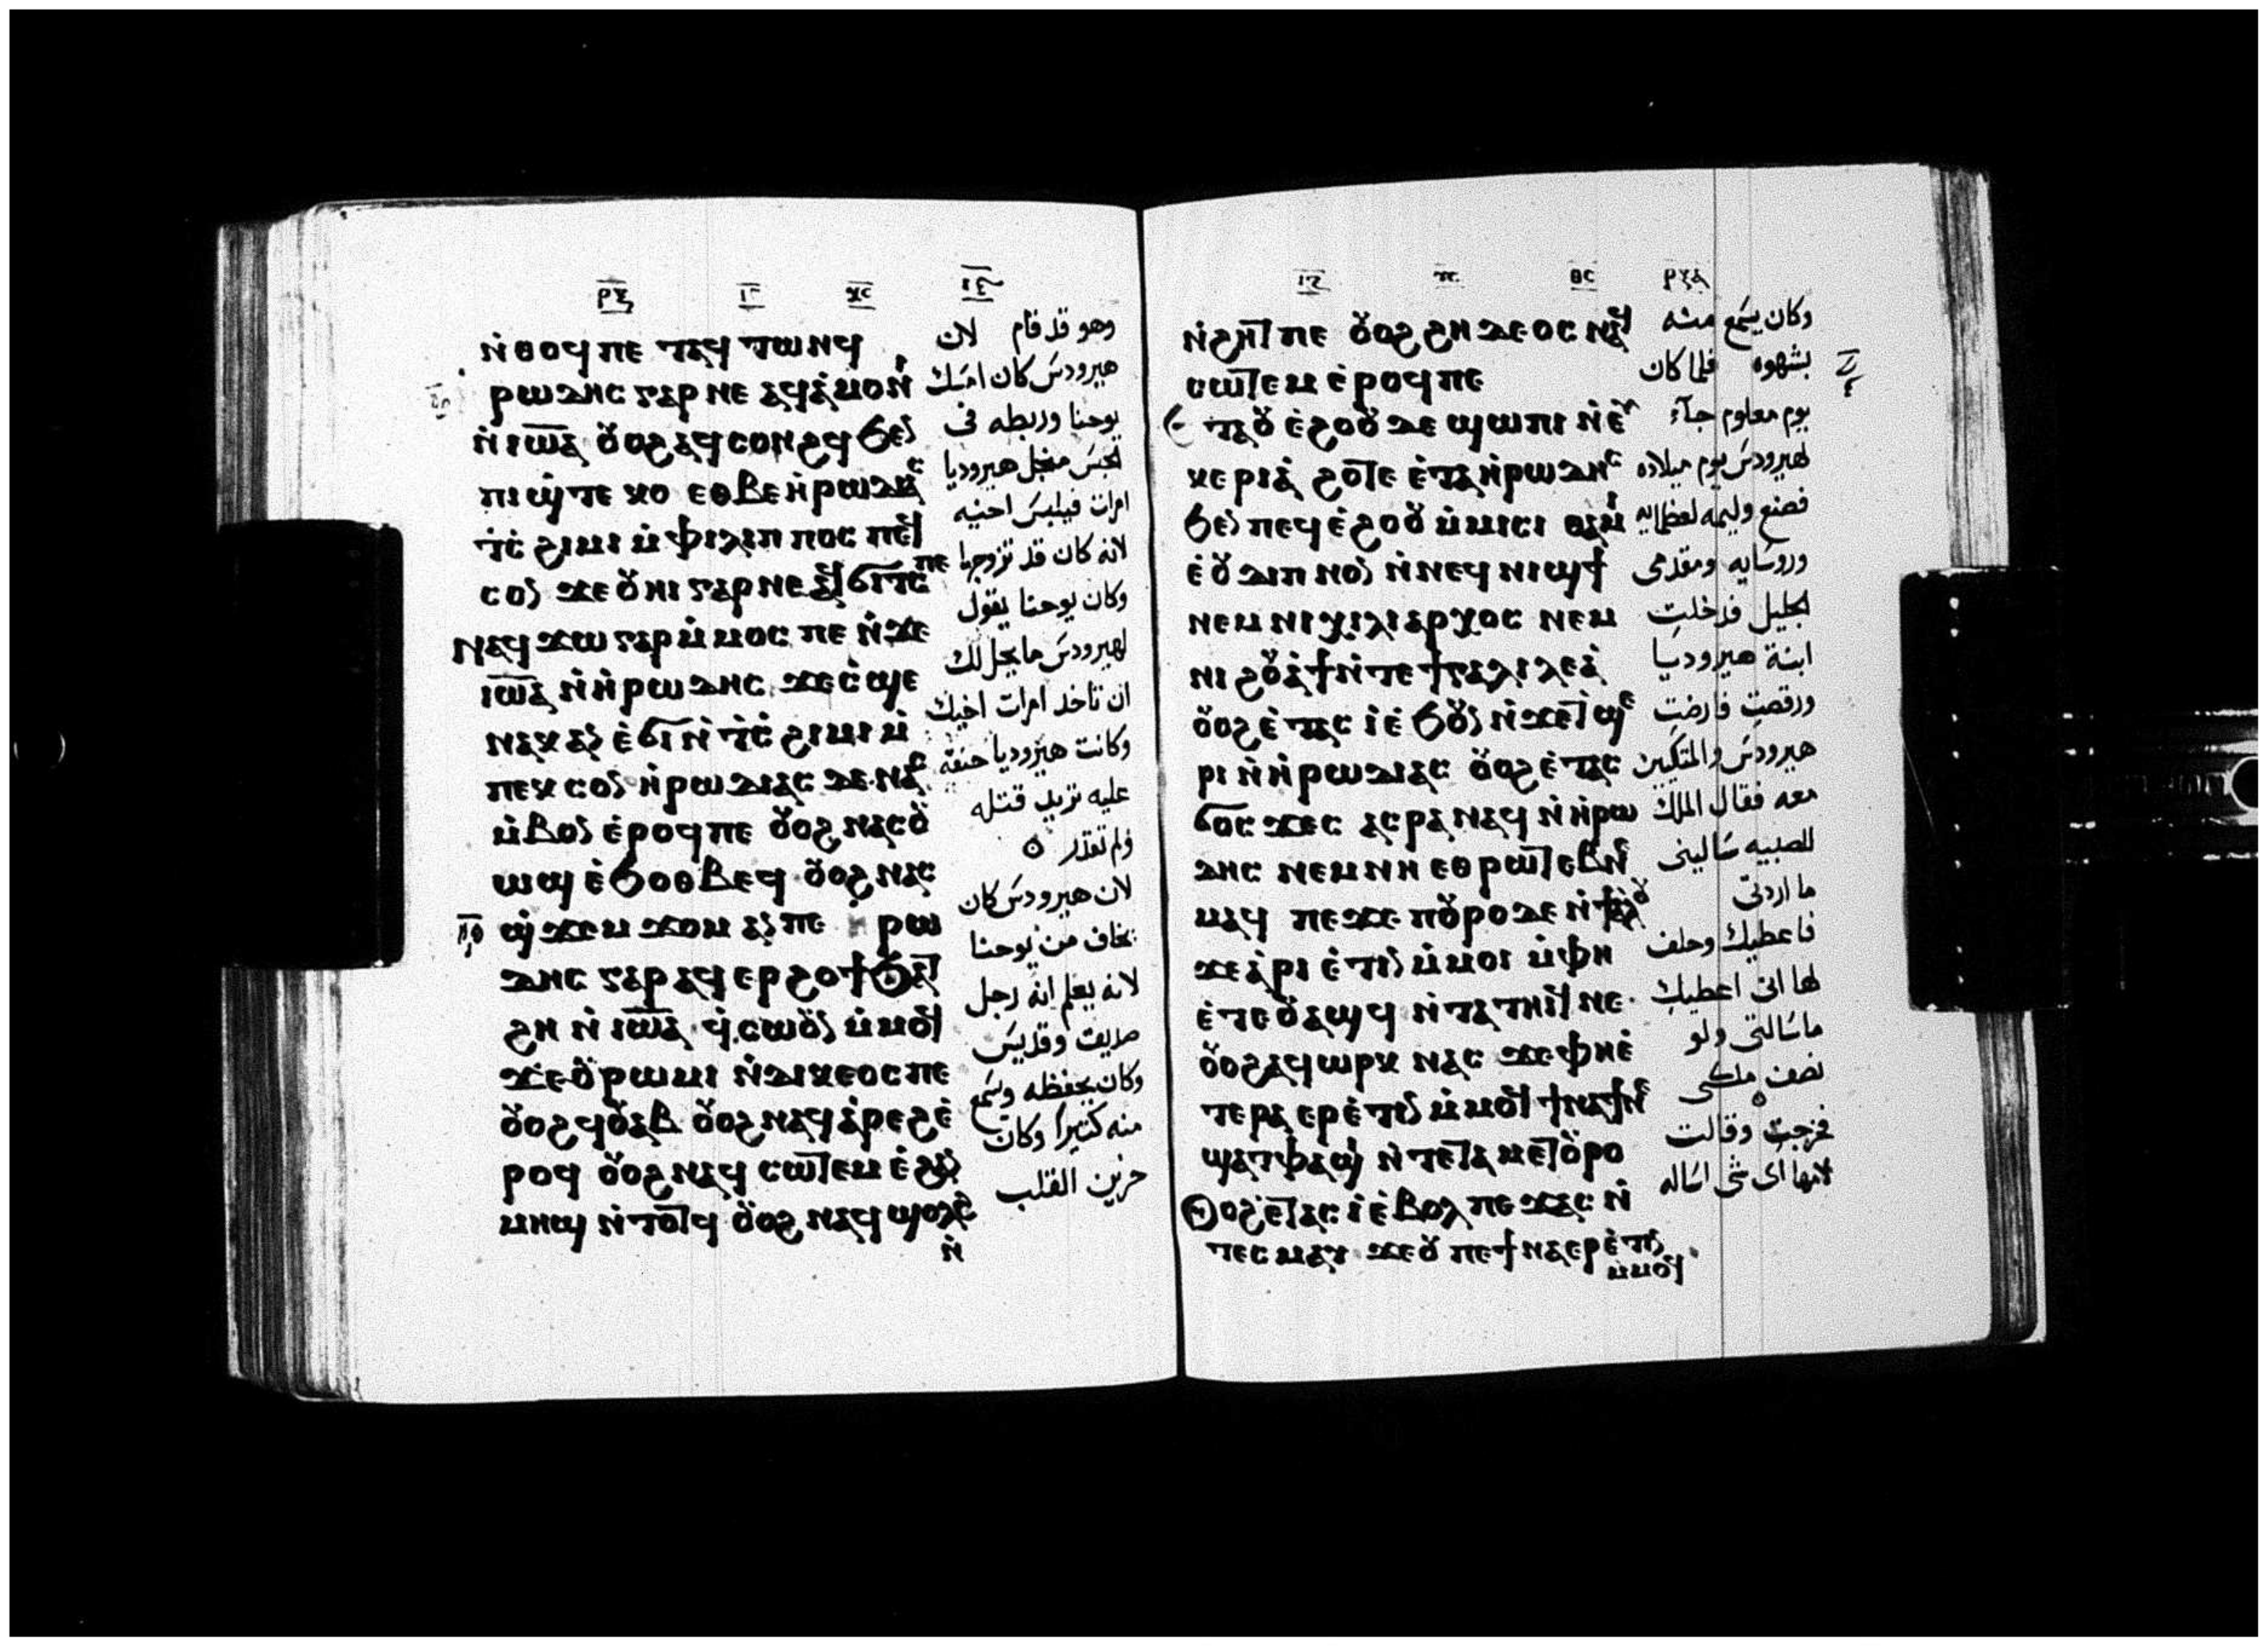 ⲛ̀ⲑⲟϥ ⲡⲉ ⲧⲁϥ ⲧⲱⲛϥ
ⲣⲱⲇⲏⲥ ⲅⲁⲣ ⲛⲉ ⲁϥⲁ̀ⲙⲟⲛⲓ
ⲛ̀ ⲓⲱⲁ ⲟⲩⲟϩ ⲁϥⲥⲟⲛϩϥ ϧⲉⲛ
ⲡⲓ ϣ̀ⲧⲉ ⲕⲟ ⲉⲑⲃⲉ ⲏ̀ⲣⲱⲇⲓⲁⲥ
ⲧ̀ⲥ̀ ϩⲓⲙⲓ ⲙ̀ ⲫⲓⲗⲓⲡⲡⲟⲥ ⲡⲉϥ
ⲥⲟⲛ ϫⲉ ⲟⲩⲏⲓ ⲅⲁⲣ ⲛⲉ ⲁϥϭⲓⲧⲥ ⲡⲉ
ⲛⲁϥ ϫⲱ ⲅⲁⲣ ⲙ̀ⲙⲟⲥ ⲡⲉ ⲛ̀ϫⲉ
ⲓⲱⲁ ⲛ̀ ⲏ̀ⲣⲱⲇⲏⲥ ϫⲉ ⲥ̀ϣⲉ
ⲛⲁⲕ ⲁⲛ ⲉ̀ϭⲓ ⲛ̀ ⲧ̀ⲥ̀ ϩⲓⲙⲓ ⲙ̀
ⲡⲉⲕ ⲥⲟⲛ ⲏ̀ⲣⲱⲇⲓⲁⲥ ⲇⲉ ⲛⲁⲥ
ⲙ̀ⲃⲟⲛ ⲉ̀ⲣⲟϥ ⲡⲉ ⲟⲩⲟϩ ⲛⲁⲥⲟⲩ
ⲱϣ ⲉ̀ϧⲟⲑⲃⲉϥ ⲟⲩⲟϩ ⲛⲁⲥ
ϣ̀ϫⲉⲙ ϫⲟⲙ ⲁⲛ ⲡⲉ ⲣⲱ
ⲇⲏⲥ ⲅⲁⲣ ⲁϥⲉⲣϩⲟϯ ϧⲁⲧ
ϩⲏ ⲛ̀ ⲓⲱⲁ ϥ̀ⲥⲱⲟⲩⲛ ⲙ̀ⲙⲟϥ
ϫⲉ ⲟⲩⲣⲱⲙⲓ ⲛ̀ⲇⲓⲕⲉⲟⲥ ⲡⲉ
ⲟⲩⲟϩ ϥⲟⲩⲁⲃ ⲟⲩⲟϩ ⲛⲁϥⲁ̀ⲣⲉϩ ⲉ̀
ⲣⲟϥ ⲟⲩⲟϩ ⲛⲁϥ ⲥⲱⲧⲉⲙ ⲉ̀ϩⲁⲛ
ⲙⲏϣ ⲛ̀ⲧⲟⲧϥ ⲟⲩⲟϩ ⲛⲁϥ ϣⲟⲗϩ
ⲛ̀
وهو قد قام لان
هيرودس كان امسك
يوحنا وربطه في
الحبس منجل هيروديا
امراة فيلبس اخيه
لانه كان قد تزوجها
وكان يوحنا يقول
لهيرودس ما يحل لك
ان تاخد امرات اخيك
وكانت هيروديا حنقة
عليه تريد قتله
ولم تقدر
لان هيرودس كان
يخاف من يوحنا
لانه يعلم انه رجل
صديق وقديس
وكان يحفظه ويسمع
منه كثيرا وكان
حزين القلب
ⲛ̀ϩⲏⲧ ⲡⲉ ⲟⲩⲟϩ ϩⲏⲇⲉⲟⲥ ⲛⲁϥ
ⲥⲱⲧⲉⲙ ⲉ̀ⲣⲟϥ ⲡⲉ
ⲉⲧⲁⲩ ⲉ̀ϩⲟⲟⲩ ⲇⲉ ϣⲱⲡⲓ ⲛ̀ⲉⲩ
ⲕⲉⲣⲓⲁ̀ ϩⲟⲧⲉ ⲉ̀ⲧⲁ ⲏ̀ⲣⲱⲇⲏⲥ
ϧⲉⲛ ⲡⲉϥ ⲉ̀ϩⲟⲟⲩ ⲙ̀ⲙⲓⲥⲓ ⲑⲁⲙⲓ
ⲉ̀ ⲟⲩ ⲇⲓⲡⲛⲟⲛ ⲛ̀ⲛⲉϥ ⲛⲓϣϯ
ⲛⲉⲙ ⲛⲓ ⲭⲓⲗⲓⲁⲣⲭⲟⲥ ⲛⲉⲙ
ⲛⲓ ϩⲟⲩⲁ̀ϯ ⲛ̀ⲧⲉ ϯⲅⲁⲗⲓⲗⲉⲁ̀
ⲟⲩⲟϩ ⲉ̀ⲧⲁⲥ ⲓ̀ⲉ̀ ϧⲟⲩⲛ ⲛ̀ϫⲉ ⲧϣⲉ
ⲣⲓ ⲛ̀ ⲏ̀ⲣⲱⲇⲓⲁⲥ ⲟⲩⲟϩ ⲉ̀ⲧⲁⲥ
ϭⲟⲥϫⲉⲥ ⲁⲥⲣⲁⲛⲁϥ ⲛ̀ ⲏ̀ⲣⲱ
ⲇⲏⲥ ⲛⲉⲙ ⲛⲏ ⲉⲑⲣⲱⲧⲉⲃ ⲛⲉ
ⲙⲁϥ ⲡⲉϫⲉ ⲡⲟⲩⲣⲟ ⲇⲉ ⲛ̀ϯⲁⲗⲟⲩ
ϫⲉ ⲁ̀ⲣⲓ ⲉ̀ⲧⲓⲛ ⲙ̀ⲙⲟⲓ ⲙ̀ⲫⲏ
ⲉ̀ⲧⲉⲟⲩⲁϣϥ ⲛ̀ⲧⲁ ⲧⲏⲓϥ ⲛⲉ
ⲟⲩⲟϩ ⲁϥⲱⲣⲕ ⲛⲁⲥ ϫⲉ ⲫⲏ ⲉ̀
ⲧⲉⲣⲁ ⲉⲣⲉ̀ⲧⲓⲛ ⲙ̀ⲙⲟϥ ϯⲛⲁⲧⲏⲓϥ ⲛⲉ
ϣⲁⲧⲫⲁϣⲓ ⲛ̀ⲧⲉ ⲧⲁⲙⲉⲧⲟⲩⲣⲟ
ⲟⲩⲟϩ ⲉ̀ⲧⲁⲥ ⲓ̀ ⲉ̀ⲃⲟⲗ ⲡⲉϫⲁⲥ ⲛ̀
ⲧⲉⲥⲙⲁⲩ ϫⲉ ⲟⲩ ⲡⲉϯⲛⲁⲉⲣⲉ̀ⲧⲓⲛ
ⲙ̀ⲙⲟϥ
وكان يسمع منه
بشهوه فلما كان
يوم معلوم جاء
لهيرودس يوم ميلاده
فصنع وليمه لعظمايه
وروسايه ومقدمي
الجليل فدخلت
ابنة هيروديا
ورقصت فارضت
هيرودس والمتكين
معه فقال الملك
للصبيه سالينى
ما اردتى
فاعطيك وحلف
لها انى اعطيك
ما سالتى ولو
نصف ملكى
فخرجت وقالت
لامها اى شى اساله